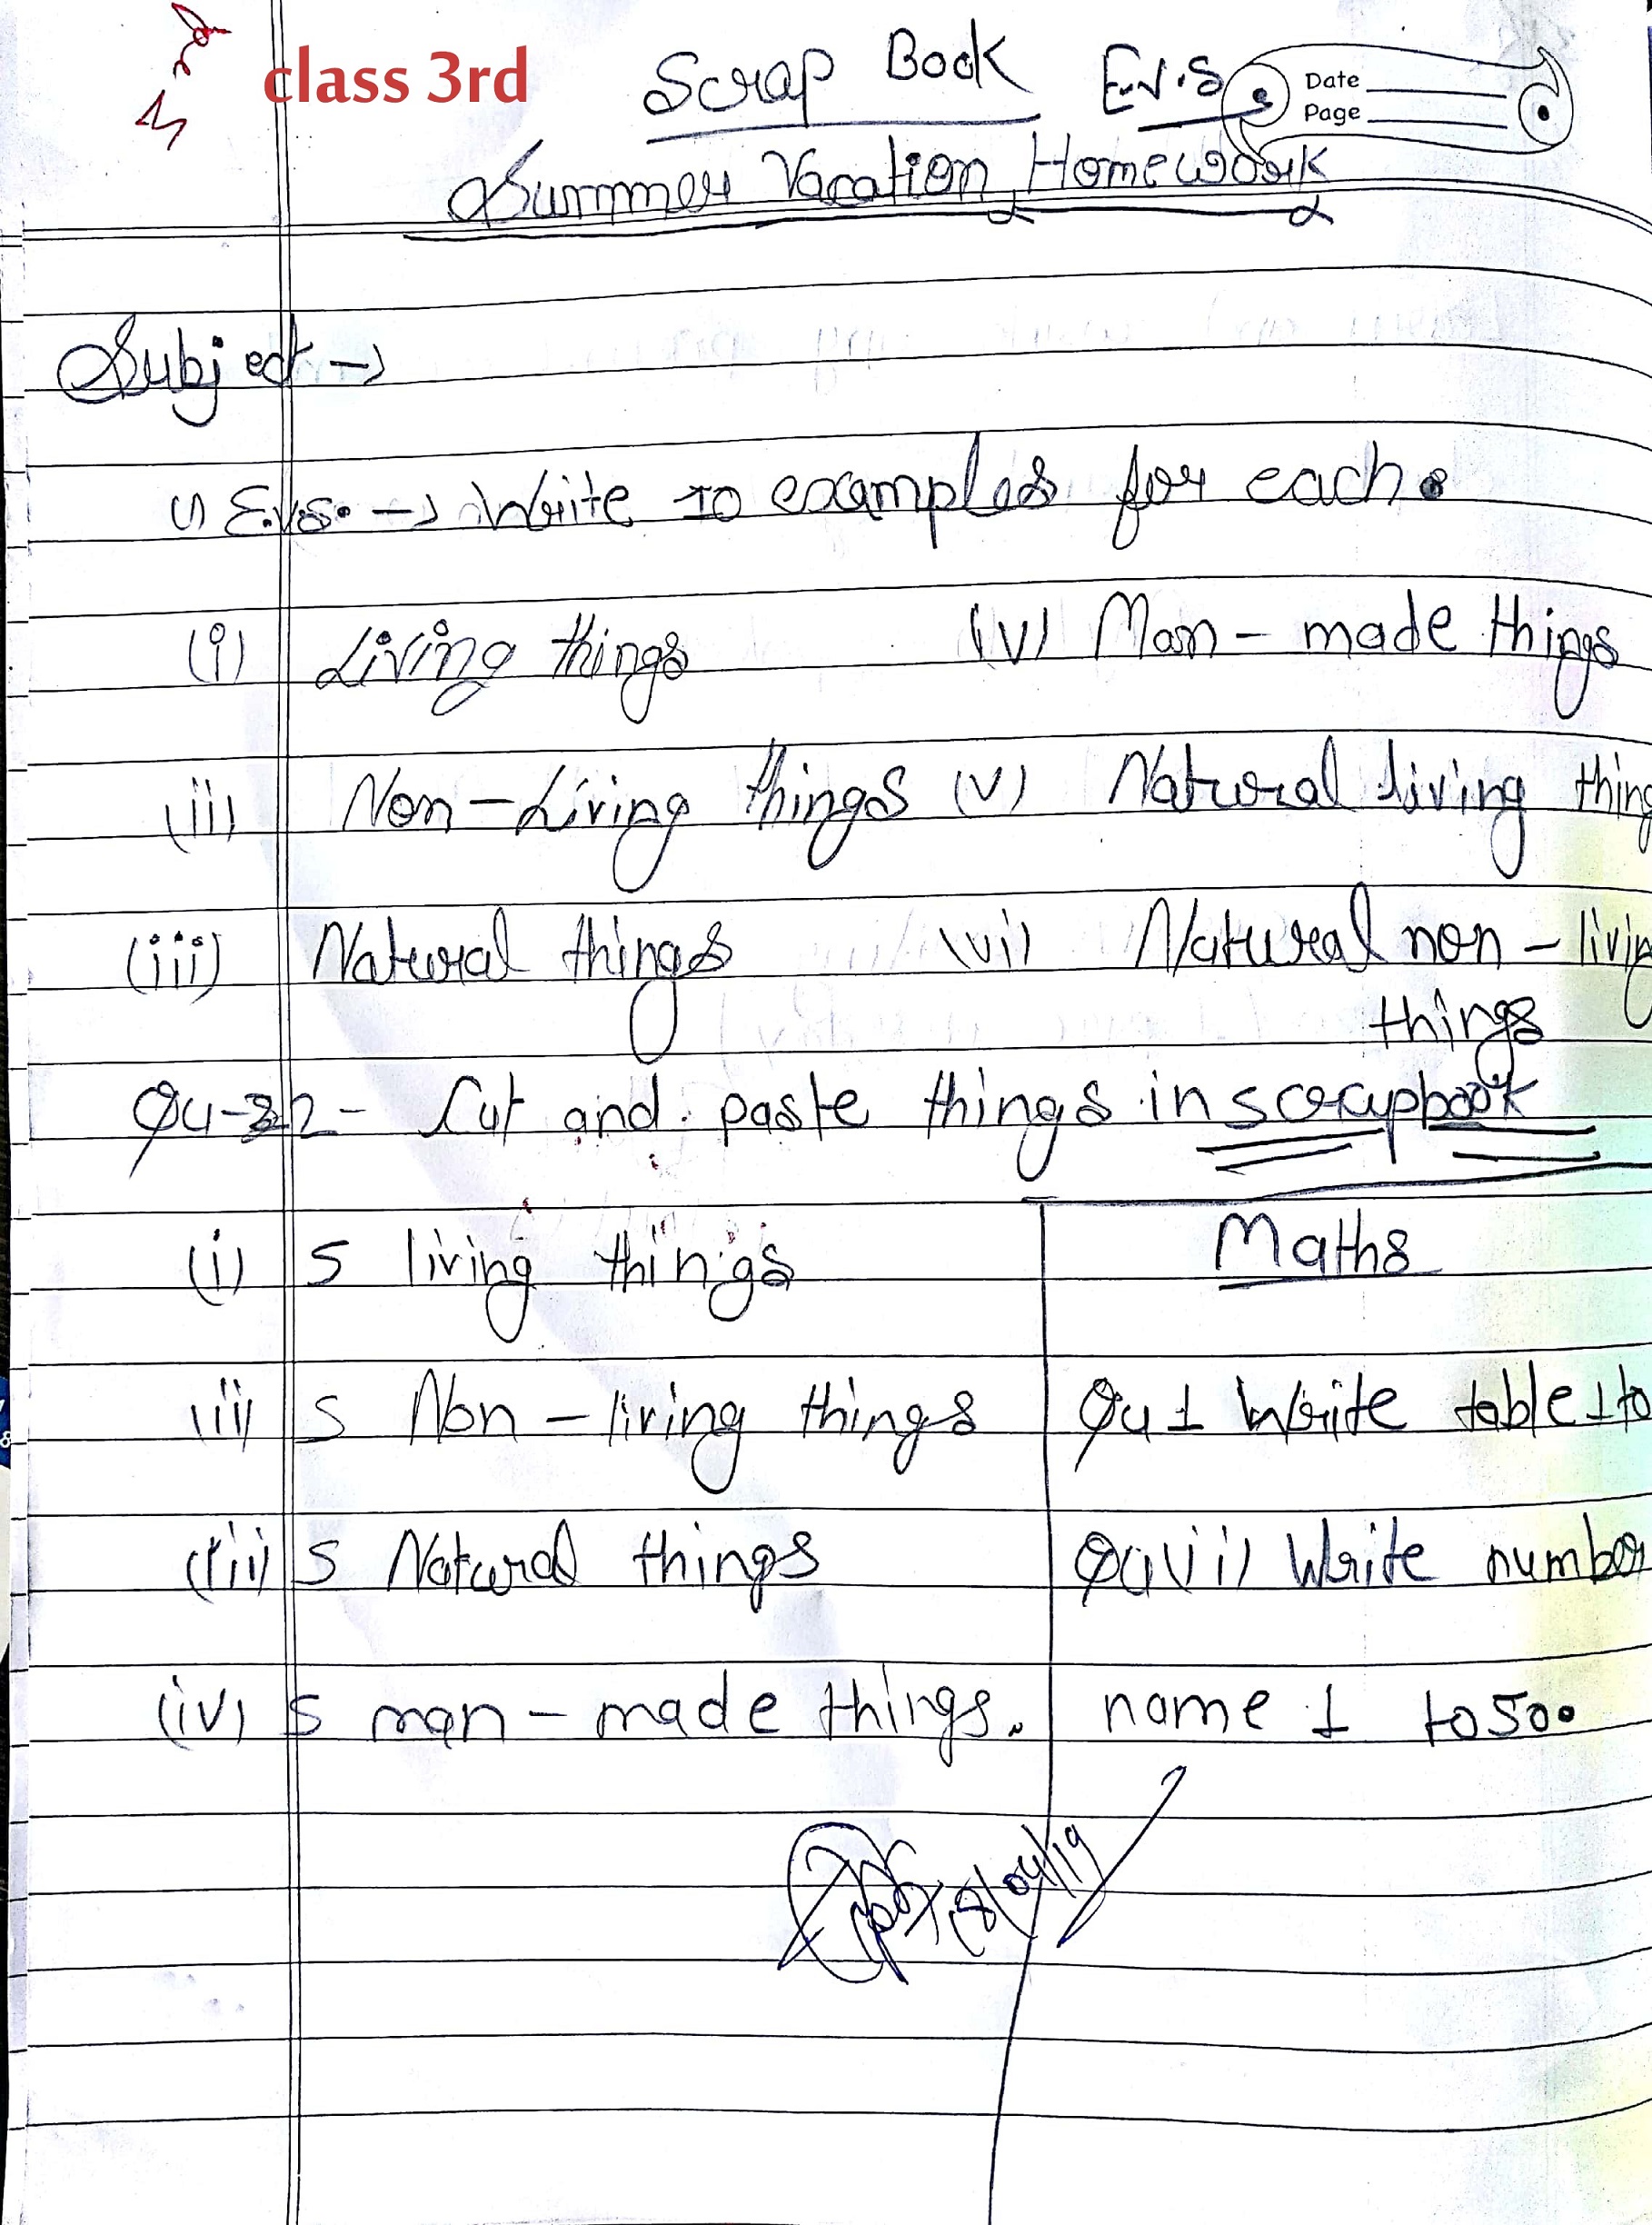 class 3rd
Scrap Book E.V.S
Date
Page
Summer Vacation Homework
Subject →
1) E.V.S. → Write 10 examples for each.
(i) Living things (iv) Man - made things
(ii) Non - Living things (v) Natural living thing
(iii) Natural things (vi) Natural non - livin
things
Qu-2 - Cut and paste things in scrapbook
(i) 5 living things
(ii) 5 Non - living things
(iii) 5 Natural things
(iv) 5 man - made things.
Maths
Qu 1 Write table 1 to
Qu (ii) Write number
name 1 to 500
18/04/19